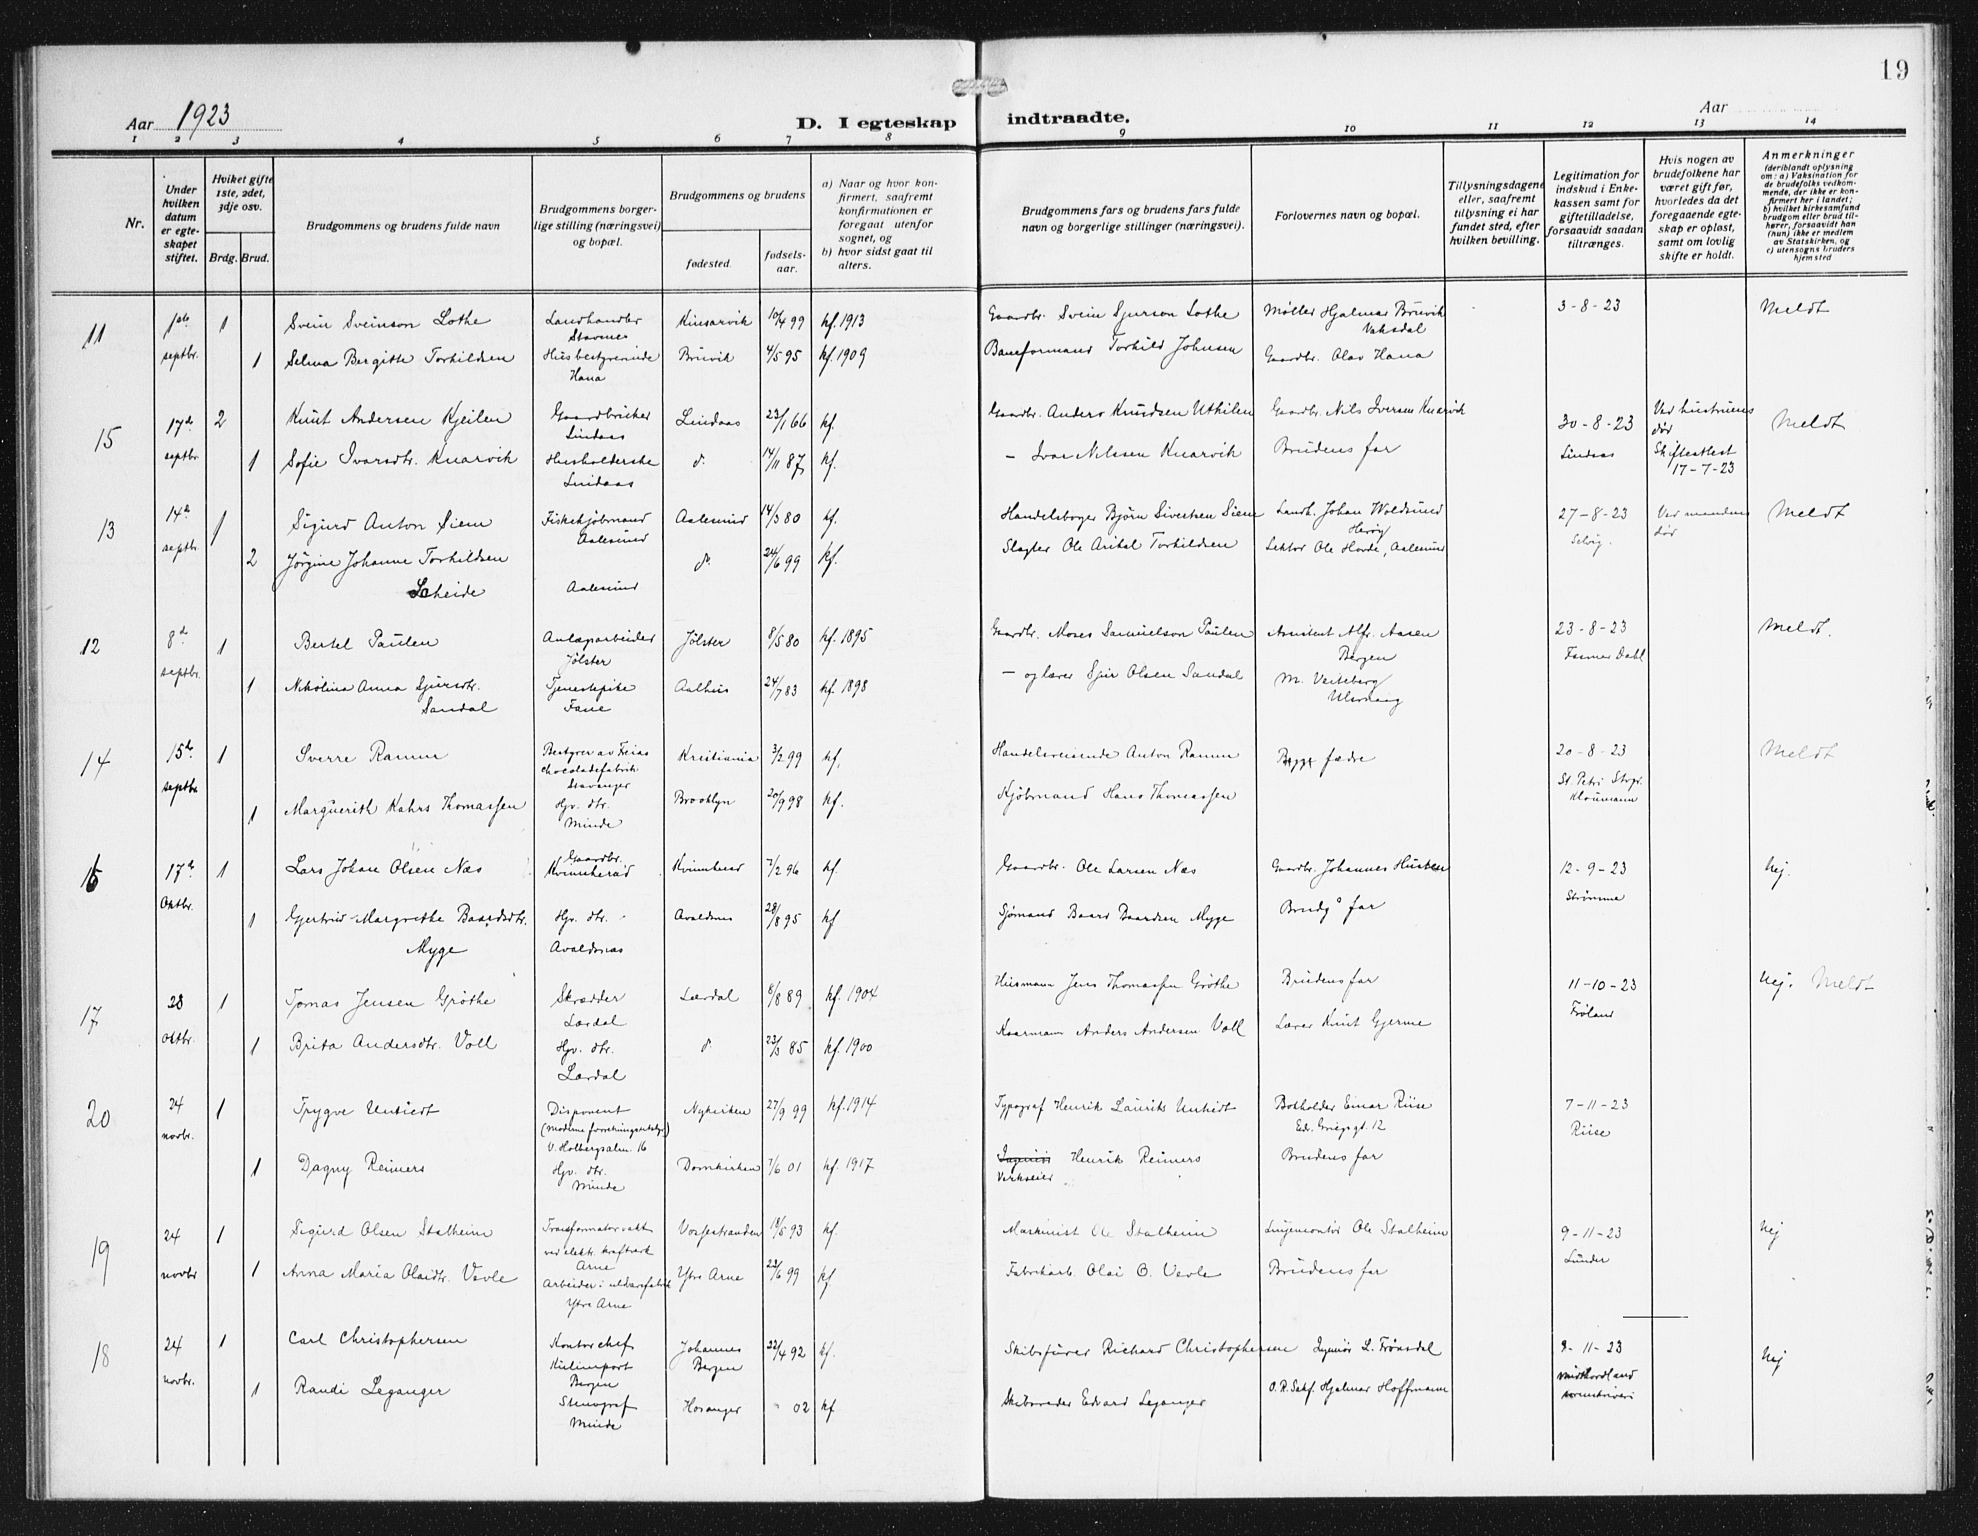 19
Aar 1923
D. I egteskap indtraadte.
Aar
1 2 3 4 5 6 7 8 9 10 11 12 13 14
Nr.
Under hvilken datum er egteskapet stiftet.
Hviket gifte 1ste, 2det, 3dje osv.
Brdg. Brud.
Brudgommens og brudens fulde navn
Brudgommens borgerlige stilling (næringsvei) og bopæl.
Brudgommens og brudens
fødested.
fødselsaar.
a) Naar og hvor konfirmert, saafremt konfirmationen er foregaat utenfor sognet, og
b) hvor sidst gaat til alters.
Brudgommens fars og brudens fars fulde navn og borgerlige stillinger (næringsvei).
Forlovernes navn og bopæl.
Tillysningsdagene eller, saafremt tillysning ei har fundet sted, efter hvilken bevilling.
Legitimation for indskud i Enkekassen samt for giftetilladelse, forsaavidt saadan tiltrænges.
Hvis nogen av brudefolkene har været gift før, hvorledes da det foregaaende egteskap er opløst, samt om lovlig skifte er holdt.
Anmerkninger (deriblandt oplysning om: a) Vaksination for de brudefolks vedkommende, der ikke er konfirmert her i landet; b) hvilket kirkesamfund brudgom eller brud tilhører, forsaavidt han (hun) ikke er medlem av Statskirken, og c) utensogns bruders hjemsted
11 septbr. 1 Svein Sveinson Lothe Landhandler Kinsarvik 10/4 99 kf. 1913 Gaardbr. Svein Sjurson Lothe Møller Hjalmar Bruvik Vaksdal 3-8-23 Meldt
1 Selma Bergitte Torkildsen Husbestyrerinde Hana Bruvik 4/5 95 kf. 1909 Baneformand Torkild Johnsen Gaardbr. Olav Hana
15 17de septbr. 2 Knut Andersen Kjeilen Gaardbruker Lindaas Lindaas 23/1 66 kf. Gaardbr. Anders Knudsen Utkilen Gaardbr. Nils Iversen Knarvik 30-8-23 Lindaas Ved hustruens død Skifteattest 17-7-23 Meldt
1 Sofie Ivarsdtr. Knarvik Husholderske Lindaas d. 14/11 87 kf. - Ivar Nilssen Knarvik Brudens far
13 14de septbr. 1 Sigurd Anton Siem Fiskekjøbmand Aalesund Aalesund 14/3 80 kf. Handelsborger Bjørn Sivertsen Siem Landh. Johan Woldsund Herøy 27-8-23 Ved mandens død Meldt
2 Jørgine Johanne Torkildsen Scheide Aalesund d. 24/6 99 kf. Slagter Ole Arital Torkildsen Lektor Ole Hovde, Aalesund
12 8de septbr. 1 Bertel Paulen Anlægsarbeider Jølster Jølster 8/5 80 kf. 1895 Gaardbr. Moses Samuelson Paulen Assistent Alfr. Aasen Bergen 23-8-23 Meldt.
1 Nikolina Anna Sjursdtr. Sandal Tjenestepike Fane Aalhus 24/7 83 kf. 1898 - og lærer Sjur Olsen Sandal
14 15de septbr. 1 Sverre Ramm Bestyrer av Freias chocoladefabrik Stavanger Kristiania 3/2 99 kf. Handelsreisende Anton Ramm Begges fædre 20-8-23 St. Petri Meldt
1 Marguerith Kahrs Thomassen Hjv. dtr. Minde Brooklyn 20/9 98 kf. Kjøbmand Hans Thomassen
16 17de Oktbr. 1 Lars Johan Olsen Næs Gaardbr. Kvinnherad Kvinnherad 7/2 96 kf. Gaardbr. Ole Larsen Næs Gaardbr. Johannes Husteen 12-9-23 Strømme Nej.
1 Gjertrud Margrethe Baardsdtr. Myge Hjv. dtr. Avaldsnæs Avaldsnes 28/8 95 kf Sjømand Baard Baardsen Myge Brudg. far
17 28 Oktbr. 1 Tomas Jensen Grøthe Skrædder Lærdal Lærdal 8/8 89 kf. 1904 Husmann Jens Thomassen Grøthe Brudens far 11-10-23 Frøland Nej. Meldt
1 Brita Andersdtr. Voll Hjv. dtr. Lærdal d. 23/3 85 kf. 1900 Kaarmann Anders Andersen Voll Lærer Knut Gjerme
20 24 novbr. 1 Trygve Untiedt Disponent (moderne forretningsutstyr) V. Holbergsalm. 16 Nykirken 27/9 99 kf. 1914 Typograf Henrik Laurits Untiedt Bokholder Einar Riise Edv. Griegs gt. 12 7-11-23 Riise
1 Dagny Reimers Hjv. dtr. Minde Domkirken 7/6 01 kf. 1917 Ingeniør Henrik Reimers Verkseier Brudens far
19 24 novbr 1 Sigurd Olsen Stalheim Transformatorvakt ved elektr. kraftverk Arne Vossestranden 19/5 93 kf. Maskinist Ole Stalheim Linjemontør Ole Stalheim 9-11-23 Lunder Nej
1 Anna Maria Olaidtr. Vevle Arbeider i uldvarefabrik Ytre Arne Ytre Arne 23/6 99 kf Fabrikarb. Olai O. Vevle Brudens far
18 24 novbr. 1 Carl Christophersen Kontorchef Bergen Johannes Bergen 22/4 92 kf. Skibsfører Richard Christophersen Ingeniør L. Frønsdal 9-11-23 Midthordland sorenskriveri Nej
1 Randi Leganger Stenograf Minde Hosanger 02 kf Skibsreder Edvard Leganger O.R.Sakf. Hjalmar Hoffmann